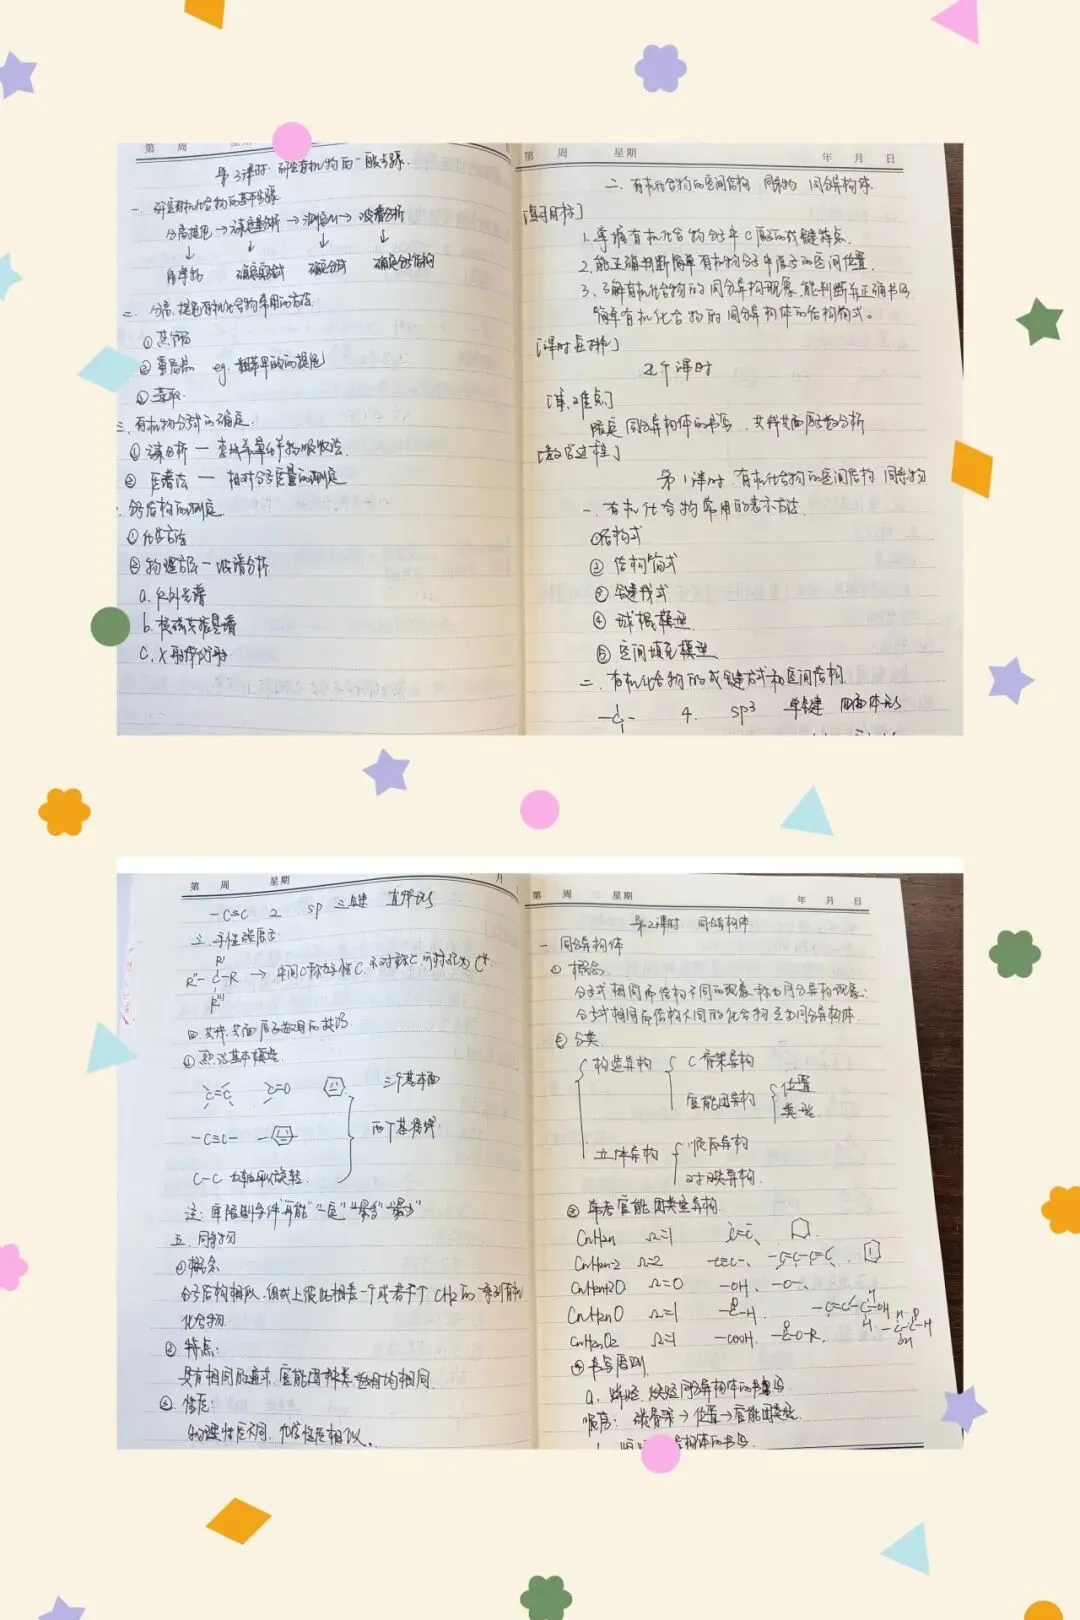 第 周 星期
第3课时 研究有机物的一般步骤.
一. 研究有机化合物的基本步骤
分离提纯 → 元素定量分析 → 测定M → 波谱分析
↓ ↓ ↓ ↓
纯净物 确定实验式 确定分子式 确定分子结构
二. 分离、提纯有机化合物常用的方法
① 蒸馏
② 重结晶 eg. 粗苯甲酸的提纯
③ 萃取.
三. 有机物分子式的确定.
① 元素分析 —
② 质谱法 — 相对分子质量的测定
分子结构的测定
① 化学方法
② 物理方法 — 波谱分析
a. 红外光谱
b. 核磁共振氢谱
C. X射线衍射
第 周 星期 年 月 日
二. 有机化合物的空间结构 同系物 同分异构体
[学习目标]
1. 掌握有机化合物分子中C原子的成键特点.
2. 能正确判断简单有机物分子中原子的空间位置.
3. 了解有机化合物的同分异构现象,能判断并正确书写
简单有机化合物的同分异构体的结构简式。
[课时安排]
2个课时
[重难点]
限定同分异构体的书写. 共线共面原子数分析
[教学过程]
第1课时. 有机化合物的空间结构 同系物
一. 有机化合物常用的表示方法.
①结构式
② 结构简式
③ 键线式
④ 球棍模型
⑤ 空间填充模型
二. 有机化合物的成键方式和空间结构
-C- 4. sp³ 单键 四面体形
第 周 星期 月
-C≡C 2 sp 三键 直线形
三. 手性碳原子:
R'
R''-C-R → 中间C称为手性C, 不对称C, 可标记为C*.
R'''
四. 共线、共面原子数目的技巧
① 熟记基本模型.
C=C C=O 三个基本面
-C≡C- 两个基本线
C-C 为轴可以旋转.
注: 审限制条件“可能”“一定”“最多”“最少”
五. 同系物
①概念
分子结构相似, 组成上彼此相差一个或若干个CH₂的一系列有机
化合物.
② 特点:
具有相同的通式, 官能团种类、数目均相同.
③. 性质:
物理性质不同, 化学性质相似。
第 周 星期 年 月 日
第2课时. 同分异构体
一 同分异构体
① 概念.
分子式相同而结构不同的现象, 称为同分异构现象;
分子式相同而结构不同的化合物互为同分异构体.
② 分类.
构造异构 C骨架异构
官能团异构 位置
类型
立体异构 顺反异构
对映异构.
③ 常考官能团类型异构.
CnH2n Ω=1 C=C、
CnH2n-2 Ω=2 -C≡C-、 -C=C-C=C.
CnH2n+2O Ω=0 -OH、 -O-.
CnH2nO Ω=1
CnH2nO2 Ω=1 -COOH.
④ 书写原则.
a. 烷烃 同分异构体的书写
顺序: 碳骨架 → 位置 → 官能团类型.
构体的书写.